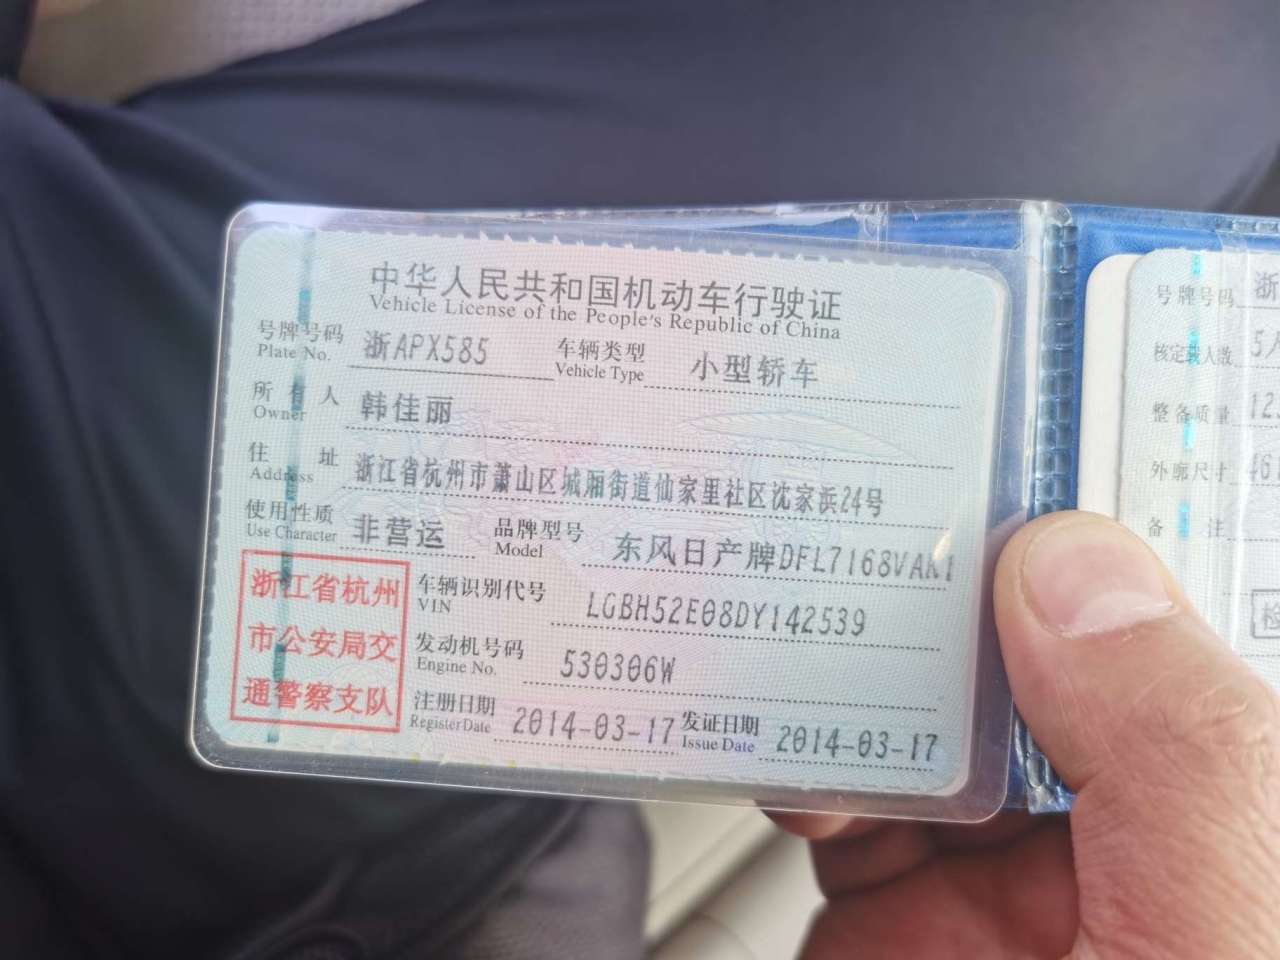 中华人民共和国机动车行驶证
Vehicle License of the People's Republic of China
号牌号码 浙APX585 车辆类型 小型轿车
Plate No. Vehicle Type
所有人 韩佳丽
Owner
住址 浙江省杭州市萧山区城厢街道仙家里社区沈家浜24号
Address
使用性质 非营运 品牌型号 东风日产牌DFL7168VAK1
Use Character Model
浙江省杭州
市公安局交
通警察支队
车辆识别代号 LGBH52E08DY142539
VIN
发动机号码 530306W
Engine No.
注册日期 2014-03-17 发证日期 2014-03-17
Register Date Issue Date
号牌号码 浙
核定载人数 5人
整备质量 12
外廓尺寸 46
备注
检